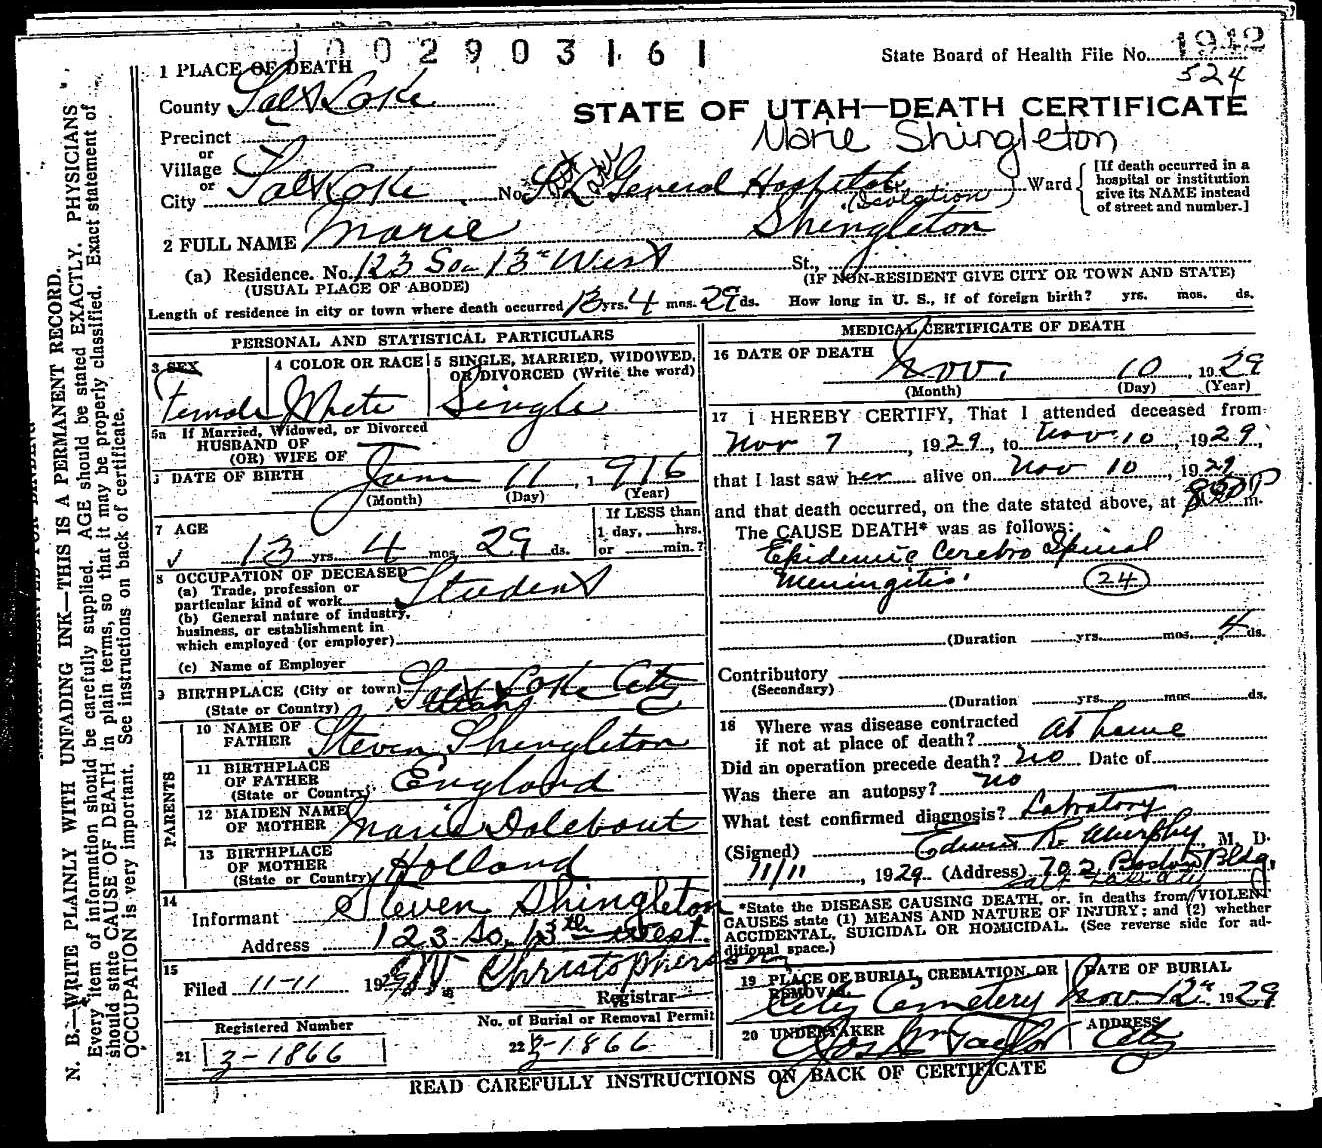 1002903161
State Board of Health File No. 1942
524
1 PLACE OF DEATH
County Salt Lake
STATE OF UTAH—DEATH CERTIFICATE
Marie Shingleton
Precinct
or
Village
or
City Salt Lake No. Salt Lake General Hospital (Isolation) Ward
[If death occurred in a
hospital or institution
give its NAME instead
of street and number.]
2 FULL NAME Marie Shingleton
(a) Residence. No. 123 So. 13th West St.,
(USUAL PLACE OF ABODE) (IF NON-RESIDENT GIVE CITY OR TOWN AND STATE)
Length of residence in city or town where death occurred 13 yrs. 4 mos. 29 ds. How long in U. S., if of foreign birth? yrs. mos. ds.
PERSONAL AND STATISTICAL PARTICULARS
3 SEX
Female
4 COLOR OR RACE
White
5 SINGLE, MARRIED, WIDOWED,
OR DIVORCED (Write the word)
Single
5a If Married, Widowed, or Divorced
HUSBAND OF
(OR) WIFE OF
DATE OF BIRTH June 11, 1916
(Month) (Day) (Year)
7 AGE
13 yrs. 4 mos. 29 ds.
If LESS than
1 day, hrs.
or min.?
8 OCCUPATION OF DECEASED
(a) Trade, profession or
particular kind of work Student
(b) General nature of industry,
business, or establishment in
which employed (or employer)
(c) Name of Employer
9 BIRTHPLACE (City or town) Salt Lake City
(State or Country) Utah
PARENTS
10 NAME OF
FATHER Steven Shingleton
11 BIRTHPLACE
OF FATHER
(State or Country) England
12 MAIDEN NAME
OF MOTHER Marie Dalebout
13 BIRTHPLACE
OF MOTHER
(State or Country) Holland
14
Informant Steven Shingleton
Address 123 So. 13th West.
15
Filed 11-11 1929
Christopherson
Registrar
Registered Number
21 3-1866
No. of Burial or Removal Permit
22 3-1866
MEDICAL CERTIFICATE OF DEATH
16 DATE OF DEATH
Nov. 10, 1929
(Month) (Day) (Year)
17 I HEREBY CERTIFY, That I attended deceased from
Nov 7, 1929, to Nov. 10, 1929,
that I last saw her alive on Nov 10, 1929
and that death occurred, on the date stated above, at m.
The CAUSE DEATH* was as follows:
Epidemic Cerebro Spinal
Meningitis. 24
(Duration yrs. mos. 4 ds.
Contributory
(Secondary)
(Duration yrs. mos. ds.
18 Where was disease contracted
if not at place of death? At home
Did an operation precede death? No Date of
Was there an autopsy? No
What test confirmed diagnosis? Labratory
(Signed) Edwin R. Murphy, M. D.
11/11, 1929 (Address) 702 Boston Bldg.
Salt Lake City
*State the DISEASE CAUSING DEATH, or, in deaths from VIOLENT
CAUSES state (1) MEANS AND NATURE OF INJURY; and (2) whether
ACCIDENTAL, SUICIDAL OR HOMICIDAL. (See reverse side for ad-
ditional space.)
19 PLACE OF BURIAL, CREMATION, OR
REMOVAL
City Cemetery
DATE OF BURIAL
Nov 12th 1929
20 UNDERTAKER
Jos Wm Taylor
ADDRESS
City
READ CAREFULLY INSTRUCTIONS ON BACK OF CERTIFICATE
N. B.—WRITE PLAINLY WITH UNFADING INK—THIS IS A PERMANENT RECORD.
Every item of information should be carefully supplied. AGE should be stated EXACTLY. PHYSICIANS
should state CAUSE OF DEATH in plain terms, so that it may be properly classified. Exact statement of
OCCUPATION is very important. See instructions on back of certificate.